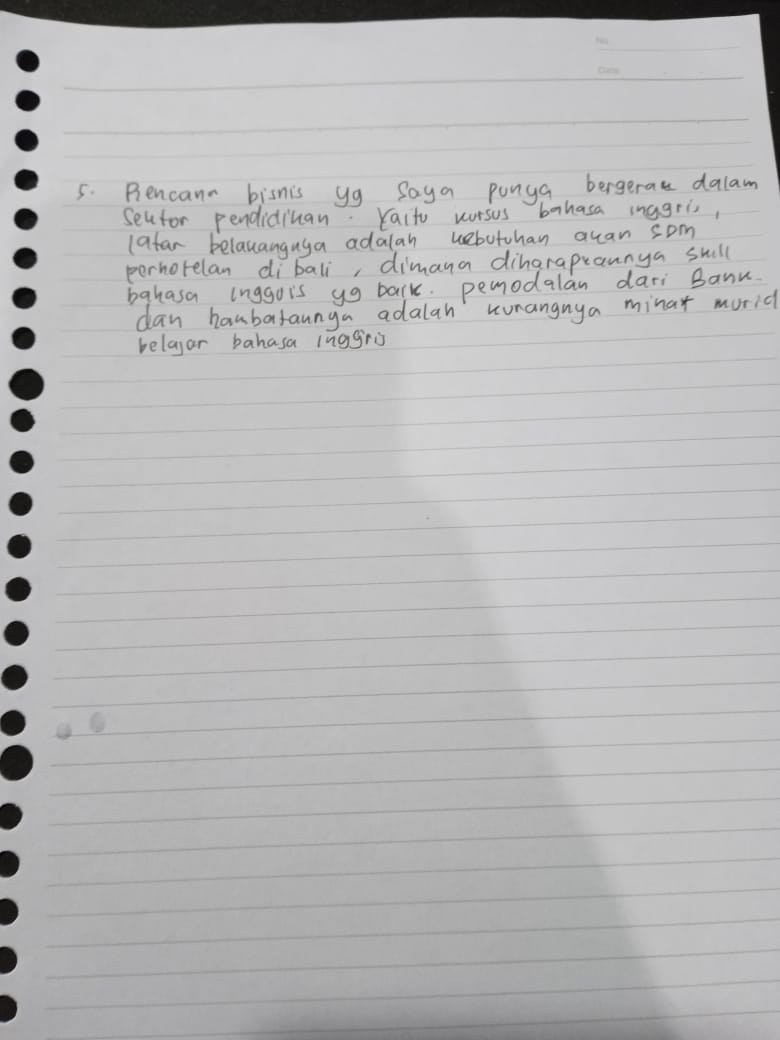 No
Date
5. Rencana bisnis yg saya punya bergerak dalam
sektor pendidikan. Yaitu kursus bahasa inggris,
latar belakangnya adalah kebutuhan akan SDM
perhotelan di bali, dimana diharapkannya skill
bahasa inggris yg baik. pemodalan dari Bank.
dan hambatannya adalah kurangnya minat murid
belajar bahasa inggris